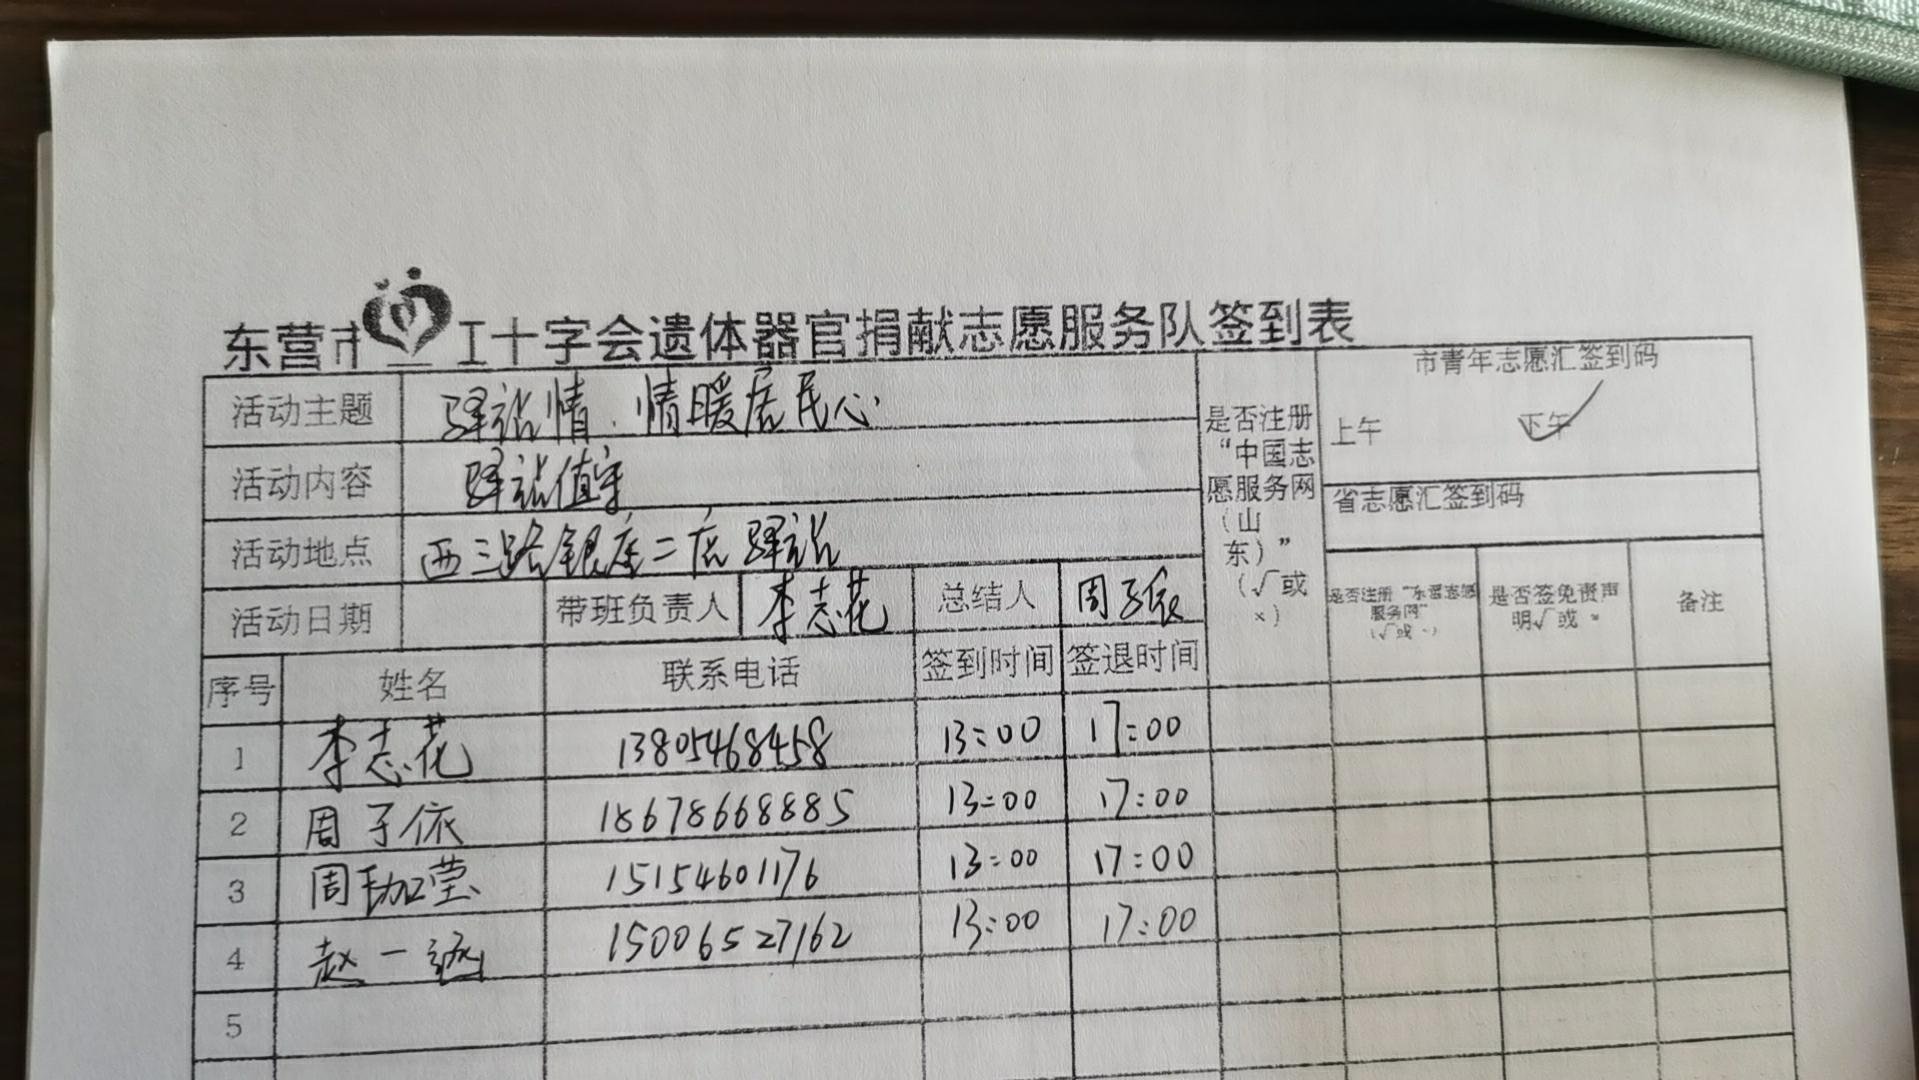 东营市 红十字会遗体器官捐献志愿服务队签到表
活动主题 驿站情.情暖居民心
活动内容 驿站值守
活动地点 西三路银座二店驿站
活动日期 带班负责人 李志花 总结人 周子依
是否注册“中国志愿服务网（山东）”（√或×）
市青年志愿汇签到码
上午 下午 √
省志愿汇签到码
是否注册“东营志愿服务网”（√或×） 是否签免责声明√或× 备注
序号 姓名 联系电话 签到时间 签退时间
1 李志花 13805468458 13:00 17:00
2 周子依 18678668885 13:00 17:00
3 周珈莹 15154601176 13:00 17:00
4 赵一涵 15006527162 13:00 17:00
5